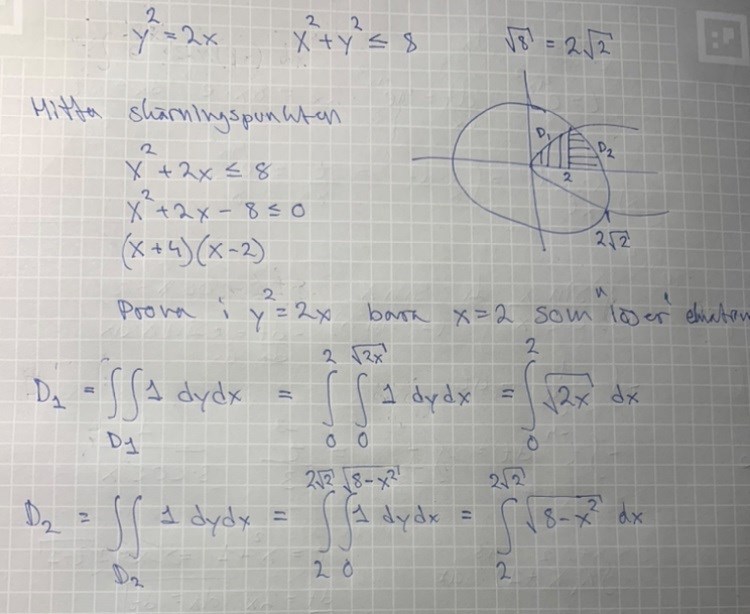 y² = 2x x² + y² ≤ 8 √8 = 2√2
Hitta skärningspunkten
x² + 2x ≤ 8
x² + 2x - 8 ≤ 0
(x+4)(x-2)
D₁ D₂
2
2√2
Prova i y² = 2x bara x = 2 som "löser"
D₁ = ∬_D1 1 dydx = ∫₀² ∫₀^√2x 1 dydx = ∫₀² √2x dx
D₂ = ∬_D2 1 dydx = ∫₂^2√2 ∫₀^√8-x² 1 dydx = ∫₂^2√2 √8-x² dx